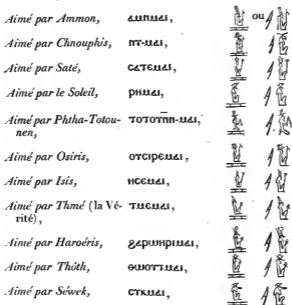 Aimé par Ammon, ⲁⲙⲛⲙⲁⲓ, ou
Aimé par Chnouphis, ⲛⲧ-ⲙⲁⲓ,
Aimé par Saté, ⲥⲁⲧⲉⲙⲁⲓ,
Aimé par le Soleil, ⲣⲏⲙⲁⲓ,
Aimé par Phtha-Totou- ⲧⲟⲧⲟⲩⲛⲛ-ⲙⲁⲓ,
nen,
Aimé par Osiris, ⲟⲩⲥⲓⲣⲉⲙⲁⲓ,
Aimé par Isis, ⲏⲥⲉⲙⲁⲓ,
Aimé par Thmé (la Vé- ⲧⲙⲉⲙⲁⲓ,
rité),
Aimé par Haroéris, ϩⲁⲣⲱⲏⲣⲓⲙⲁⲓ,
Aimé par Thôth, ⲑⲱⲟⲩⲧⲙⲁⲓ,
Aimé par Séwek, ⲥⲩⲕⲙⲁⲓ,